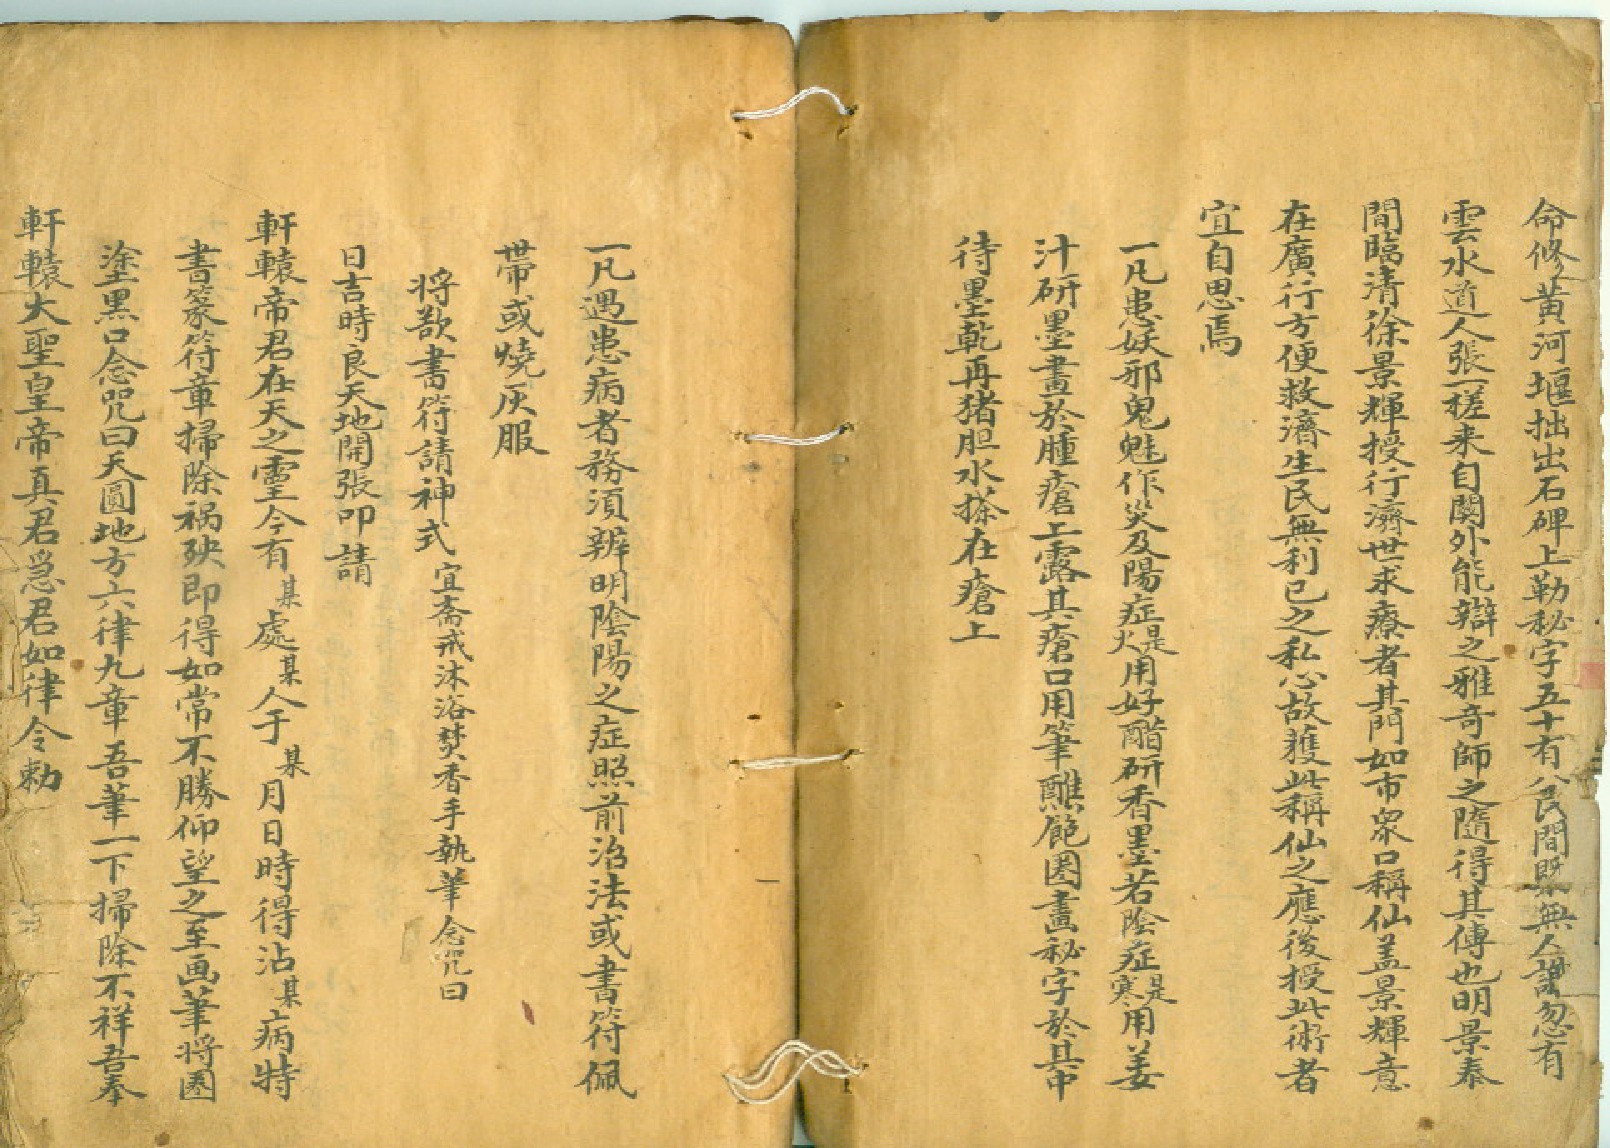 命修黃河堰拙出石碑上勒秘字五十有八民間既無人識忽有
雲水道人張一槎来自關外能辯之雅奇師之隨得其傳也明景泰
間臨清徐景輝授行濟世求療者其門如市衆口稱仙盖景輝意
在廣行方便救濟生民無利已之私心故獲此稱仙之應後授此術者
宜自思焉
一凡患妖邪鬼魅作災及陽症是火用好醋研香墨若陰症是寒用姜
汁研墨畫於腫瘡上露其瘡口用筆醮飽圏畫秘字於其中
待墨乾再猪胆水搽在瘡上
一凡遇患病者務須辨明陰陽之症照前治法或書符佩
帶或燒灰服
將欲書符請神式 宜齋戒沐浴焚香手執筆念咒曰
日吉時良天地開張叩請
軒轅帝君在天之靈今有某處某人于某月日時得沾某病特
書篆符章掃除禍殃即得如常不勝仰望之至画筆將圏
塗黑口念咒曰天圓地方六律九章吾筆一下掃除不祥吾奉
軒轅大聖皇帝真君急君如律令勅